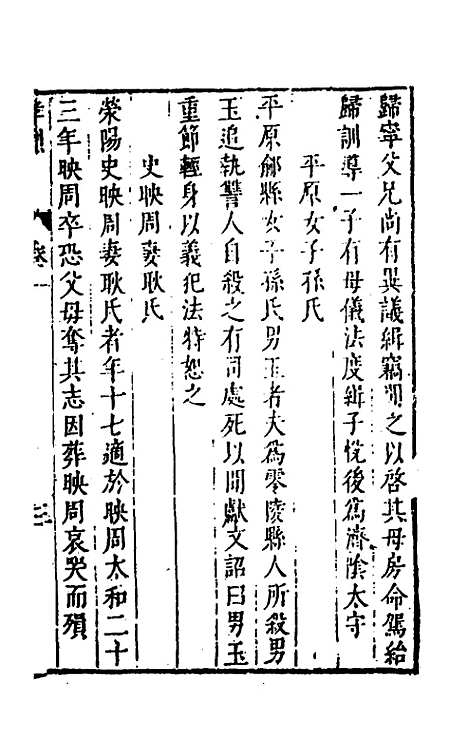 歸寧父兄尚有異議緝竊聞之以啓其母房命駕紿
歸訓導一子有母儀法度緝子恱後爲濟陰太守
平原女子孫氏
平原鄃縣女子孫氏男玉者夫爲零陵縣人所殺男
玉追執讐人自殺之有司處死以聞獻文詔曰男玉
重節輕身以義犯法特恕之
史映周妻耿氏
滎陽史映周妻耿氏者年十七適於映周太和二十
三年映周卒恐父母奪其志因葬映周哀哭而殞